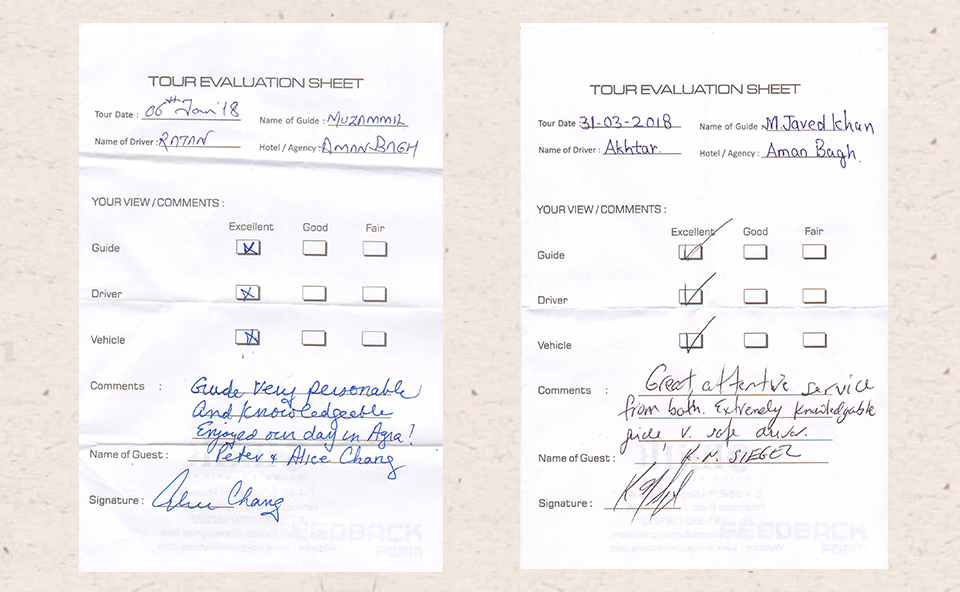 TOUR EVALUATION SHEET
Tour Date : 06th Jan'18 Name of Guide : MUZAMMIL
Name of Driver : RATAN Hotel / Agency : AMAN-BAGH
YOUR VIEW / COMMENTS :
Excellent Good Fair
Guide
Driver
Vehicle
Comments : Guide very personable
And knowledgeable
Enjoyed our day in Agra!
Name of Guest : Peter & Alice Chang
Signature : Alice Chang
FEEDBACK
FORM
TOUR EVALUATION SHEET
Tour Date 31-03-2018 Name of Guide : M. Javed Khan
Name of Driver : Akhtar. Hotel / Agency : Aman Bagh.
YOUR VIEW / COMMENTS :
Excellent Good Fair
Guide
Driver
Vehicle
Comments : Great, attentive service
from both. Extremely knowledgable
guide, v. safe driver.
Name of Guest : K. N. SIEGEL
Signature :
FEEDBACK
FORM